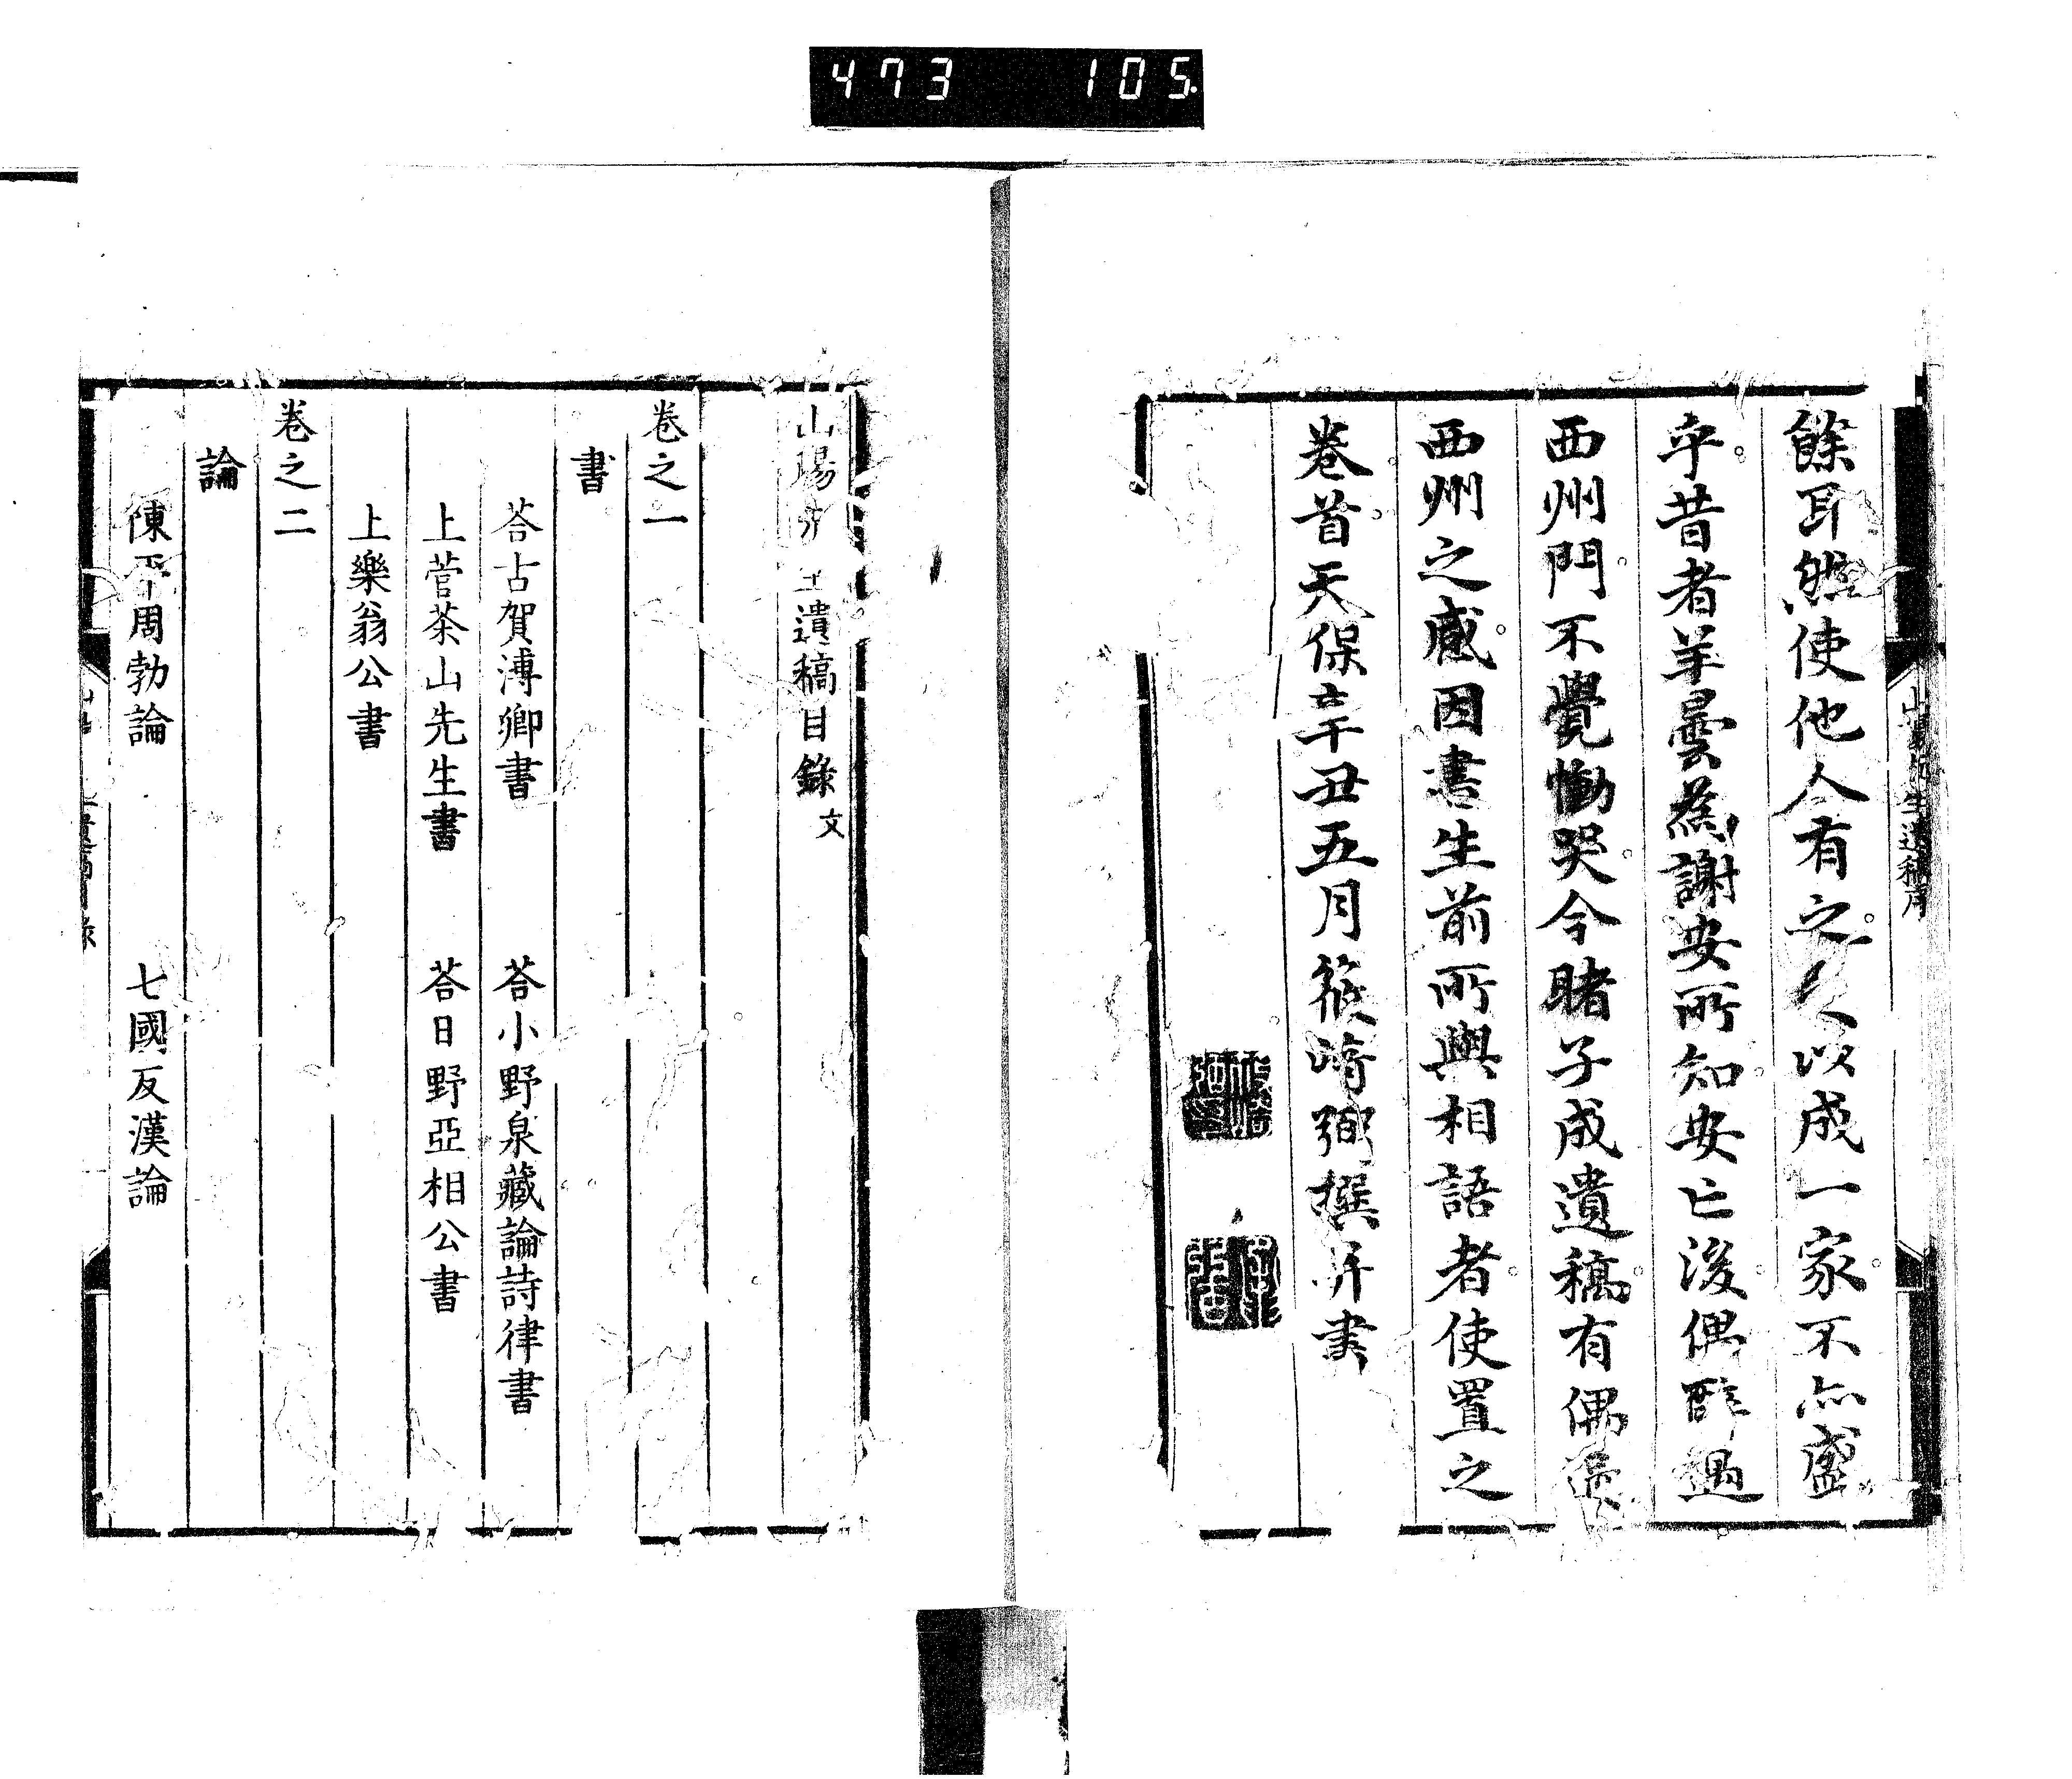 473 105
餘耳然使他人有之以成一家不亦盛
乎昔者羊曇為謝安所知安亡後偶醉過
西州門不覺慟哭今睹子成遺稿有偶
西州之感因書生前所與相語者使置之
卷首天保辛丑五月篠崎弼撰并書
山陽先生遺稿目錄文
卷之一
書
荅古賀溥卿書 荅小野泉藏論詩律書
上菅茶山先生書 荅日野亞相公書
上樂翁公書
卷之二
論
陳平周勃論 七國反漢論